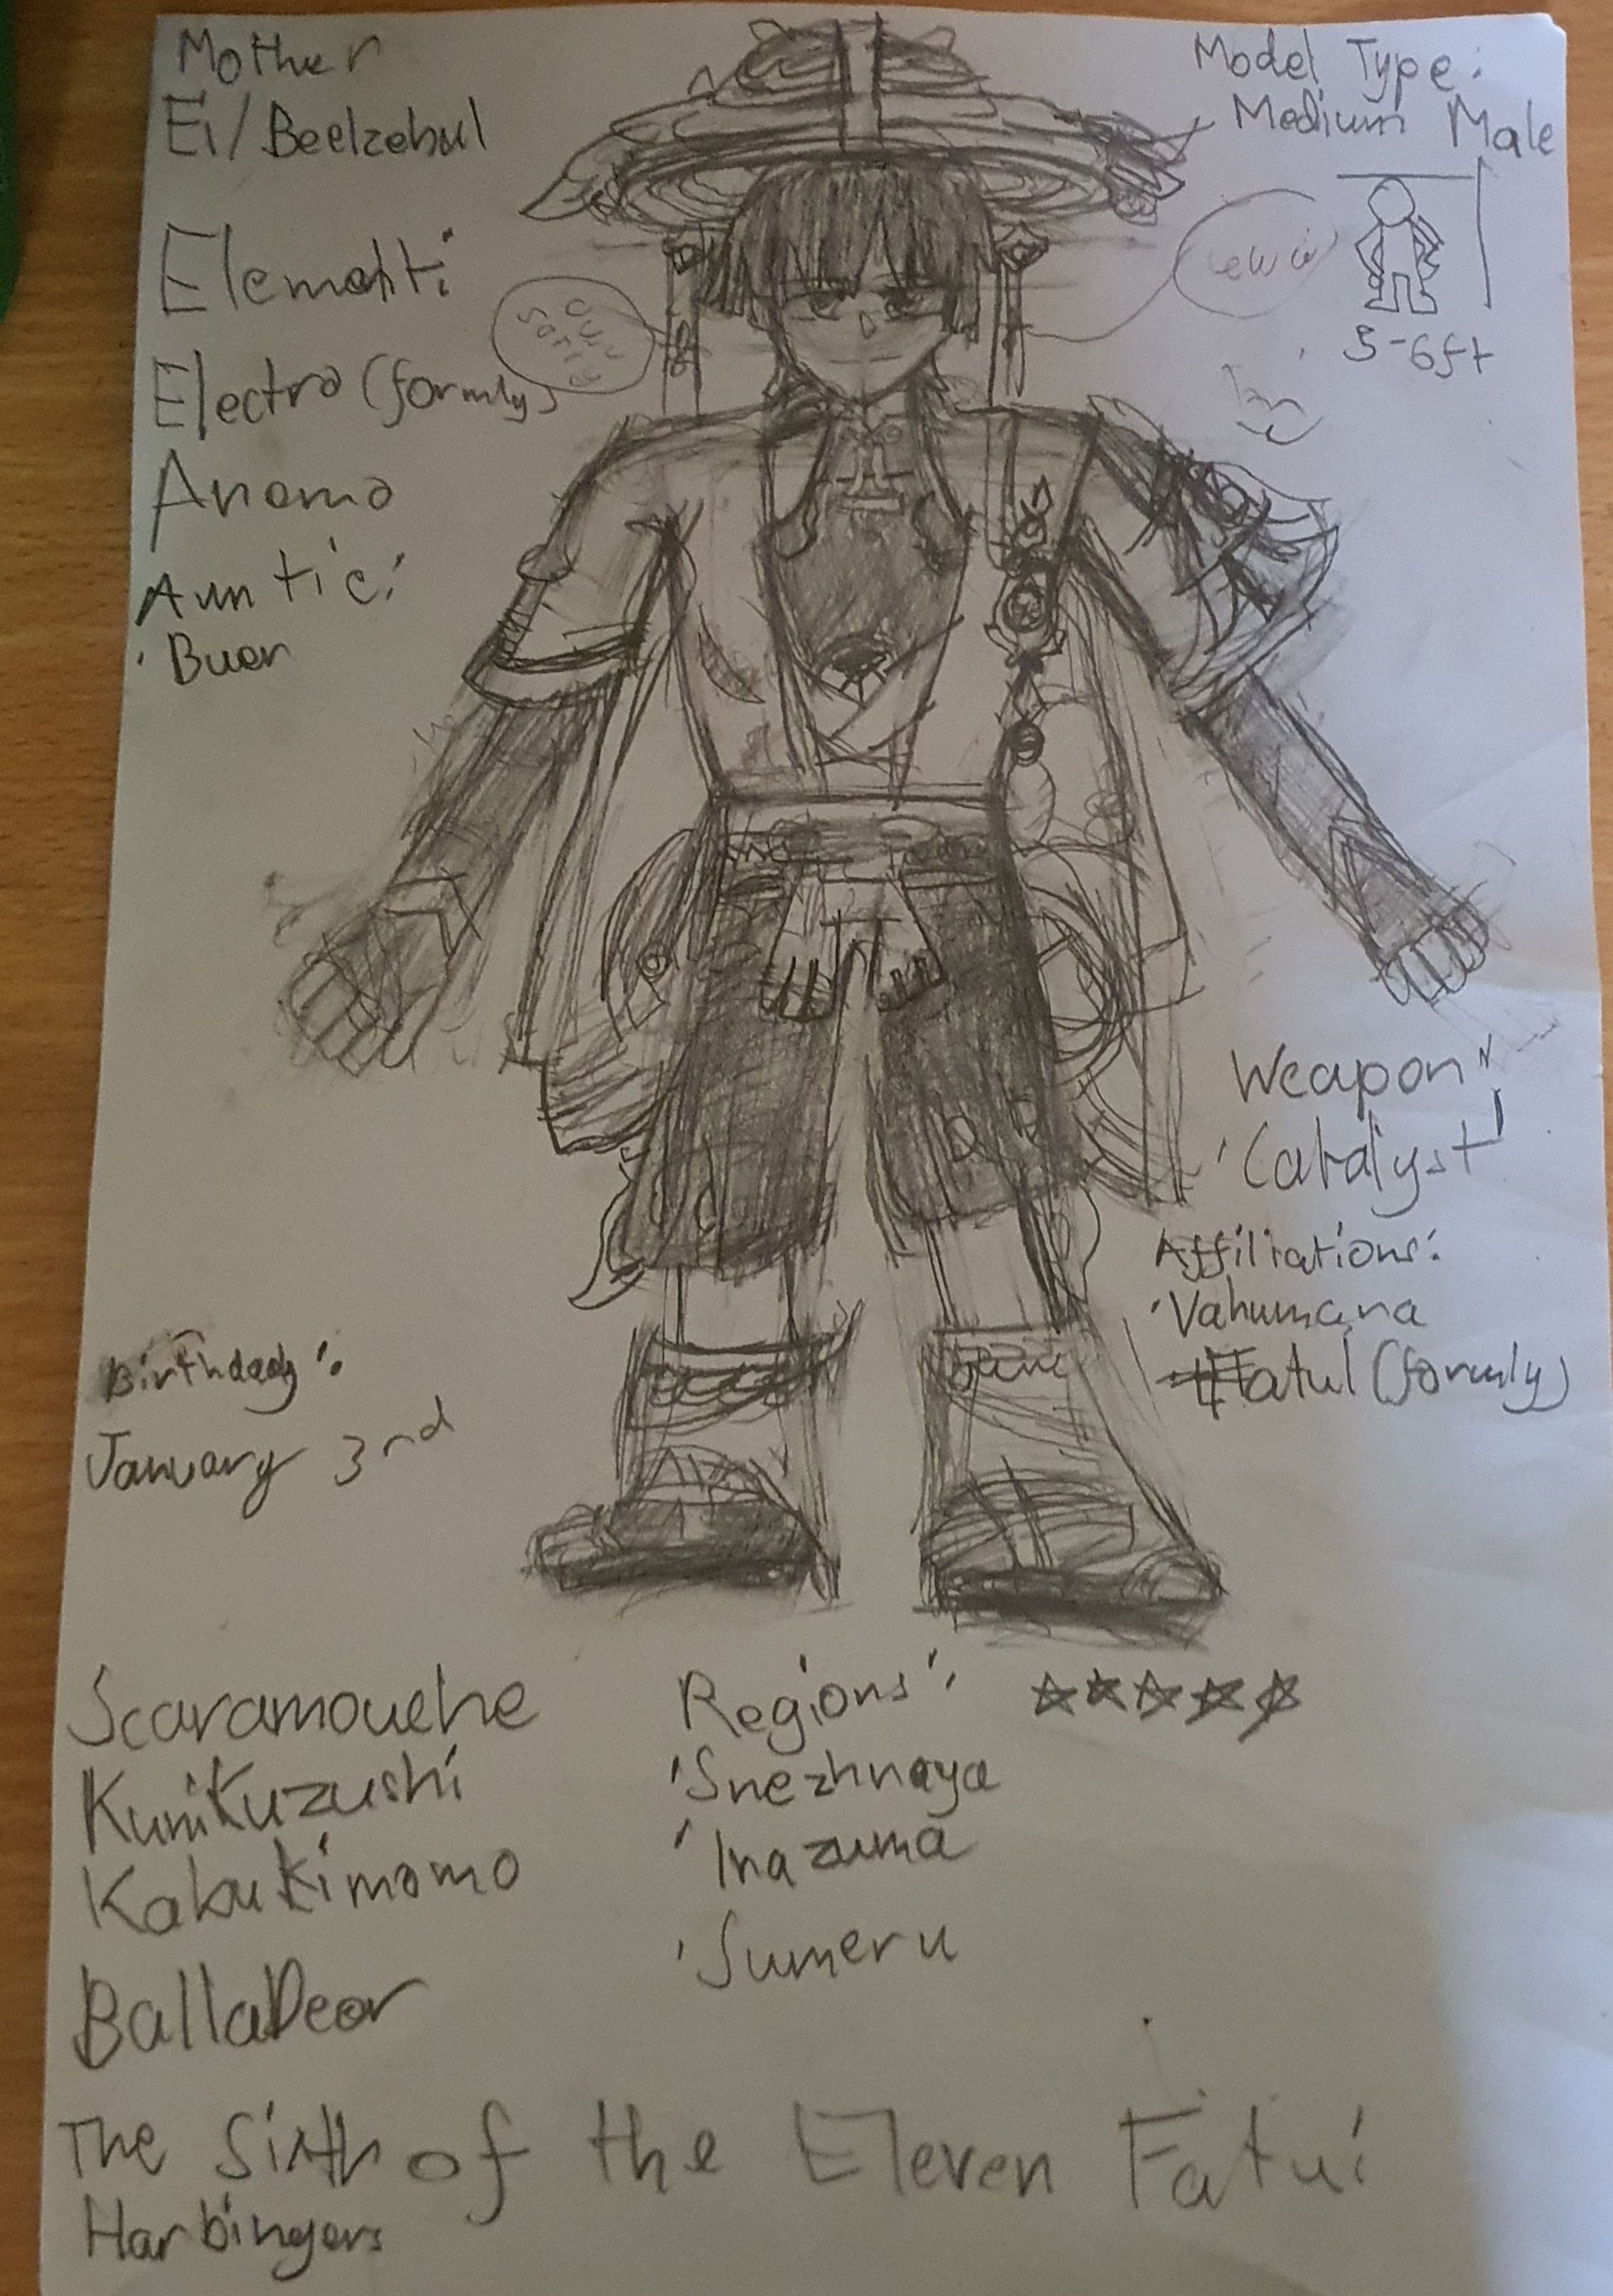 Mother
Ei/Beelzebul
Element:
Electro (formly)
Anemo
Auntie:
· Buer
Model Type:
Medium Male
5-6ft
Weapon"
'Catalyst'
Affiliations:
'Vahumana
Fatui (formly)
Birthday:
January 3rd
Scaramouche
Kunikuzushi
Kabukimomo
BallaDeor
The Sixth of the Eleven Fatui
Harbingers
Regions:
'Snezhnaya
'Inazuma
'Sumeru